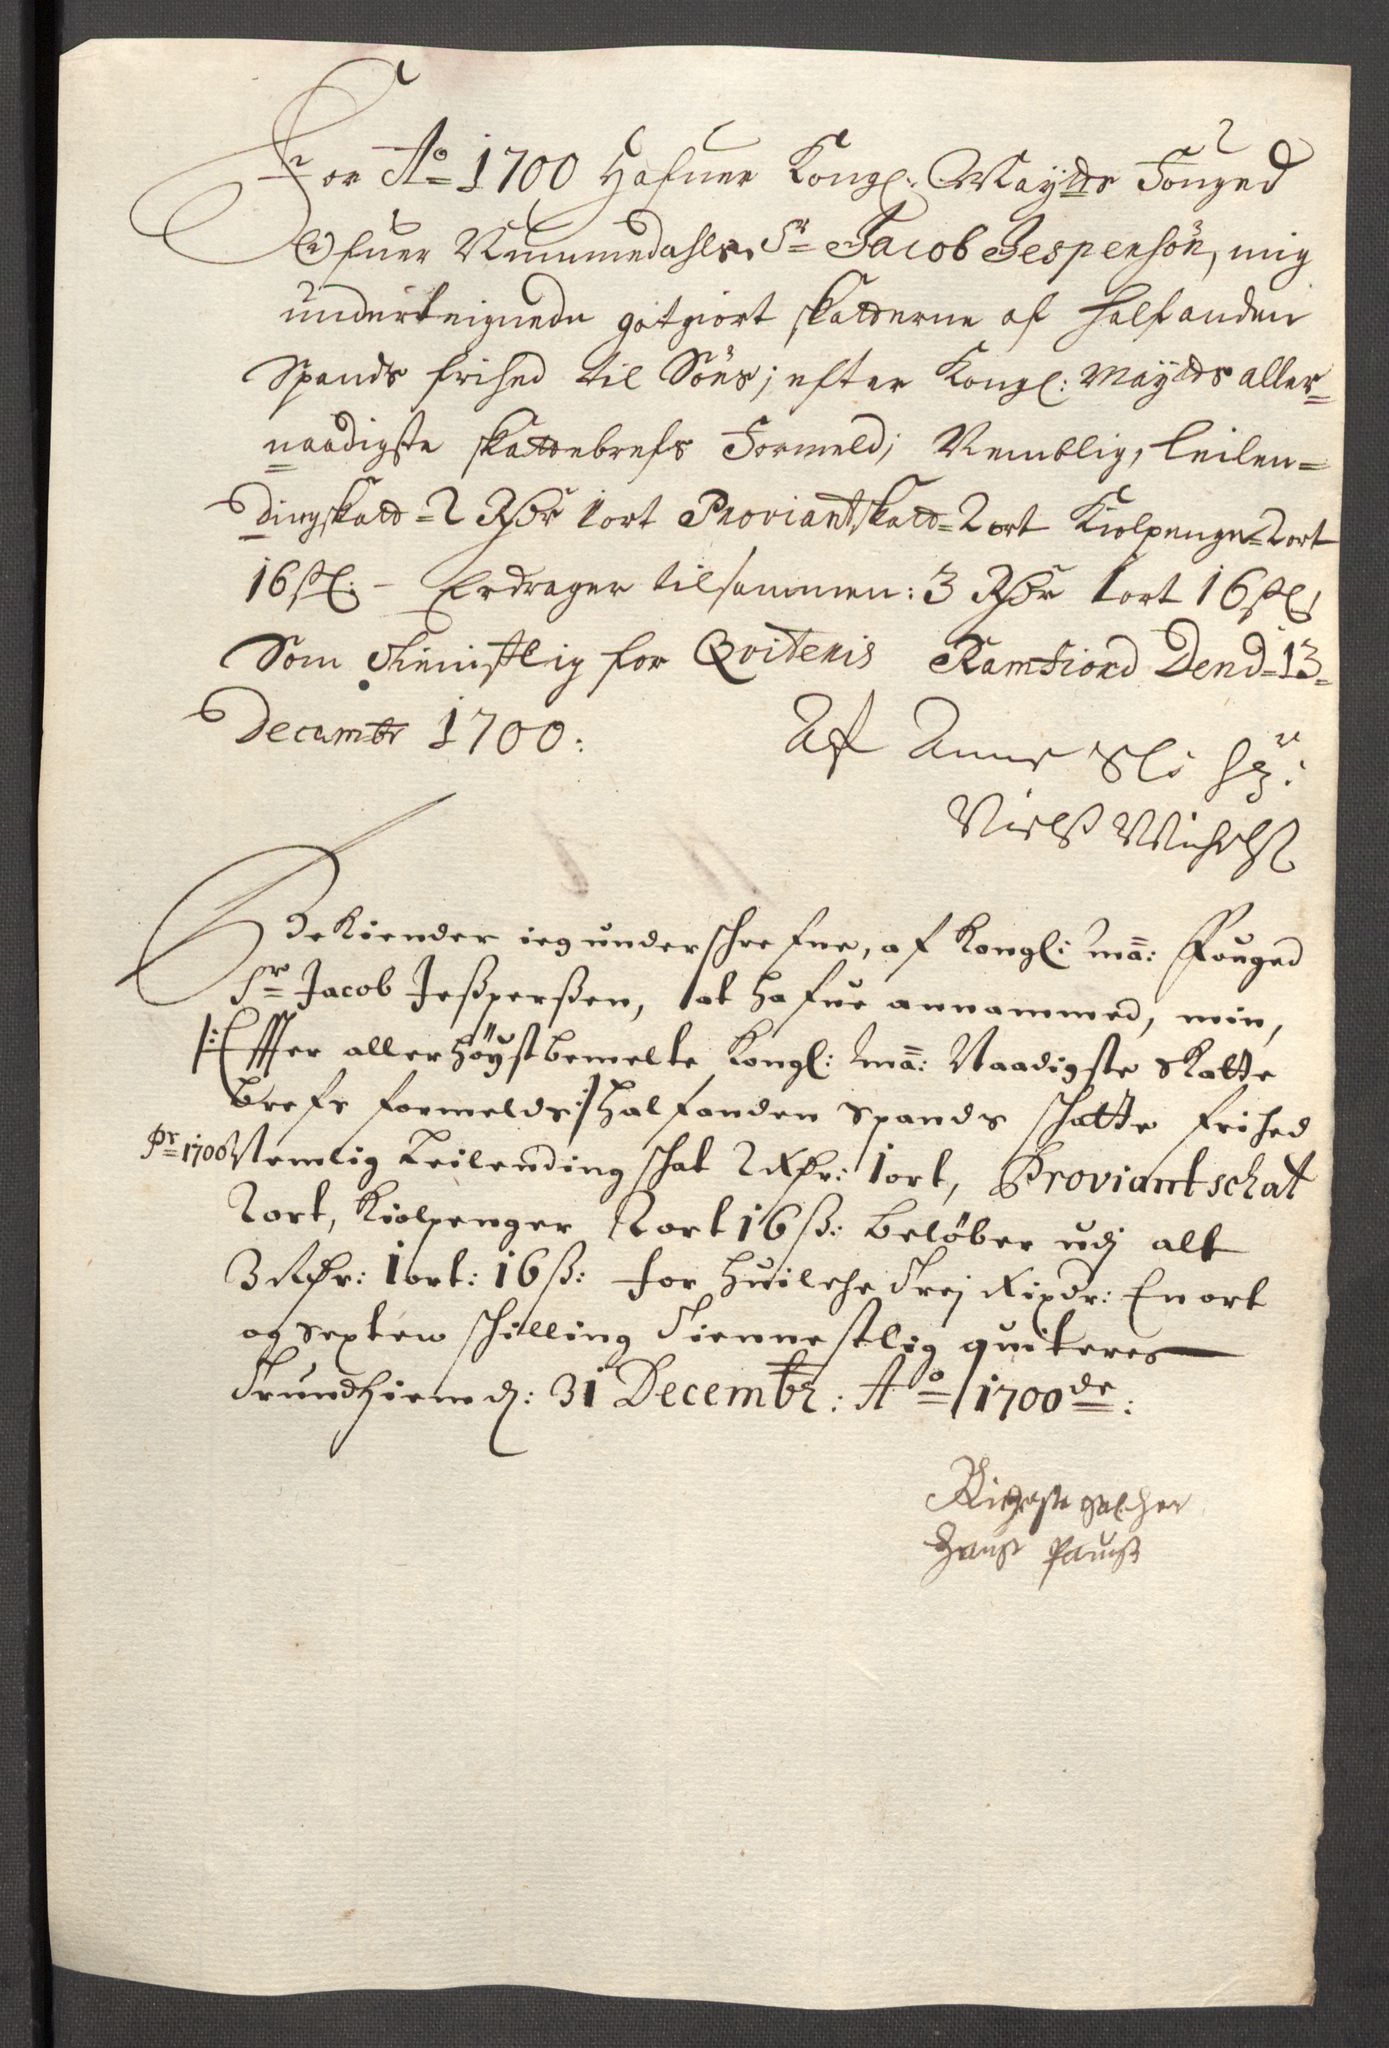 For Ao 1700 Hafuer Kongl: Maÿtts Fouged
Ofuer Nummedahls Sr Jacob Jespersön, mig
underteignede gotgiort skatterne af halfanden
Spands frihed til Söes; efter Kongl: Maÿtts aller-
naadigste skattebrefs Formeld; Nemblig, Leilen-
dingskatt = 2 Rdr 1 ort Proviantskatt = 2 ort Kiolpenge = 2 ort
16 sl: - Erdrager tilsammen: 3 Rdr 1 ort 16 sl;
Som tienistlig for Qviteris Ramfiord Dend = 13 =
Decembr 1700:
Af Anne Sl:
Nielß
Bekiender ieg underschrefne, af Kongl: Ma: Fouged
Sr Jacob Jeßperßen, at hafue annammed, min,
/: Effter allerhöyst bemelte Kongl: Ma: Naadigste Skatte
brefs formelds :/ halfanden Spands schatte frihed
Pr 1700 Nemlig Leilending schat 2 Rdr: 1 ort, Proviantschat
2 ort, Kiolpenger 2 ort 16 ß: belöber udj alt
3 Rdr: 1 ort: 16 ß: for huilche Trej Rixdr: En ort
og Sexten schilling Tiennestlig quiteres
Trundhiem d: 31 Decembr: Ao 1700de:
Hanß Pauß